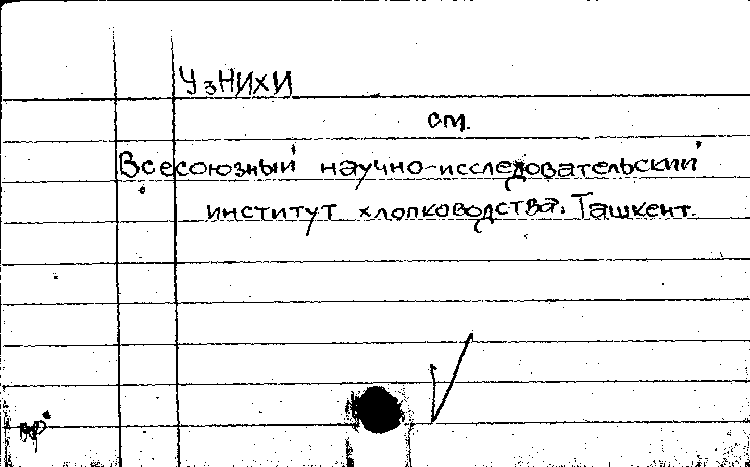 УзНИХИ
см.
Всесоюзный научно-исследовательский
институт хлопководства. Ташкент.